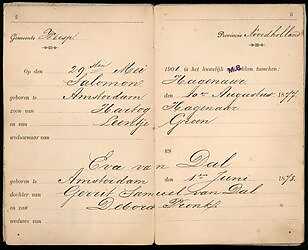 2
3
Gemeente Weesp
Provincie Noordholland
Op den 29sten Mei 1901 is het huwelijk voltrokken tusschen:
Salomon Hagenaar
geboren te Amsterdam den 1877
zoon van Hartog Hagenaar
en van Leentje Groen
weduwnaar van
EN
Eva van Dal
geboren te Amsterdam den 1en Juni 1873.
dochter van Samuel van Dal
en van Debora
weduwe van